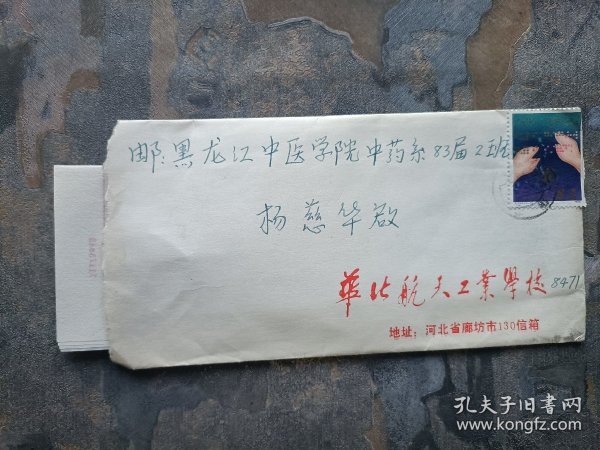 邮:黑龙江中医学院中药系83届2班
杨慈华启
華北航天工業學校 8471
地址：河北省廊坊市130信箱
孔夫子旧书网
www.kongfz.com